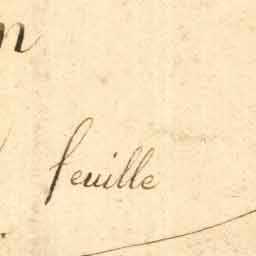 n
feuille